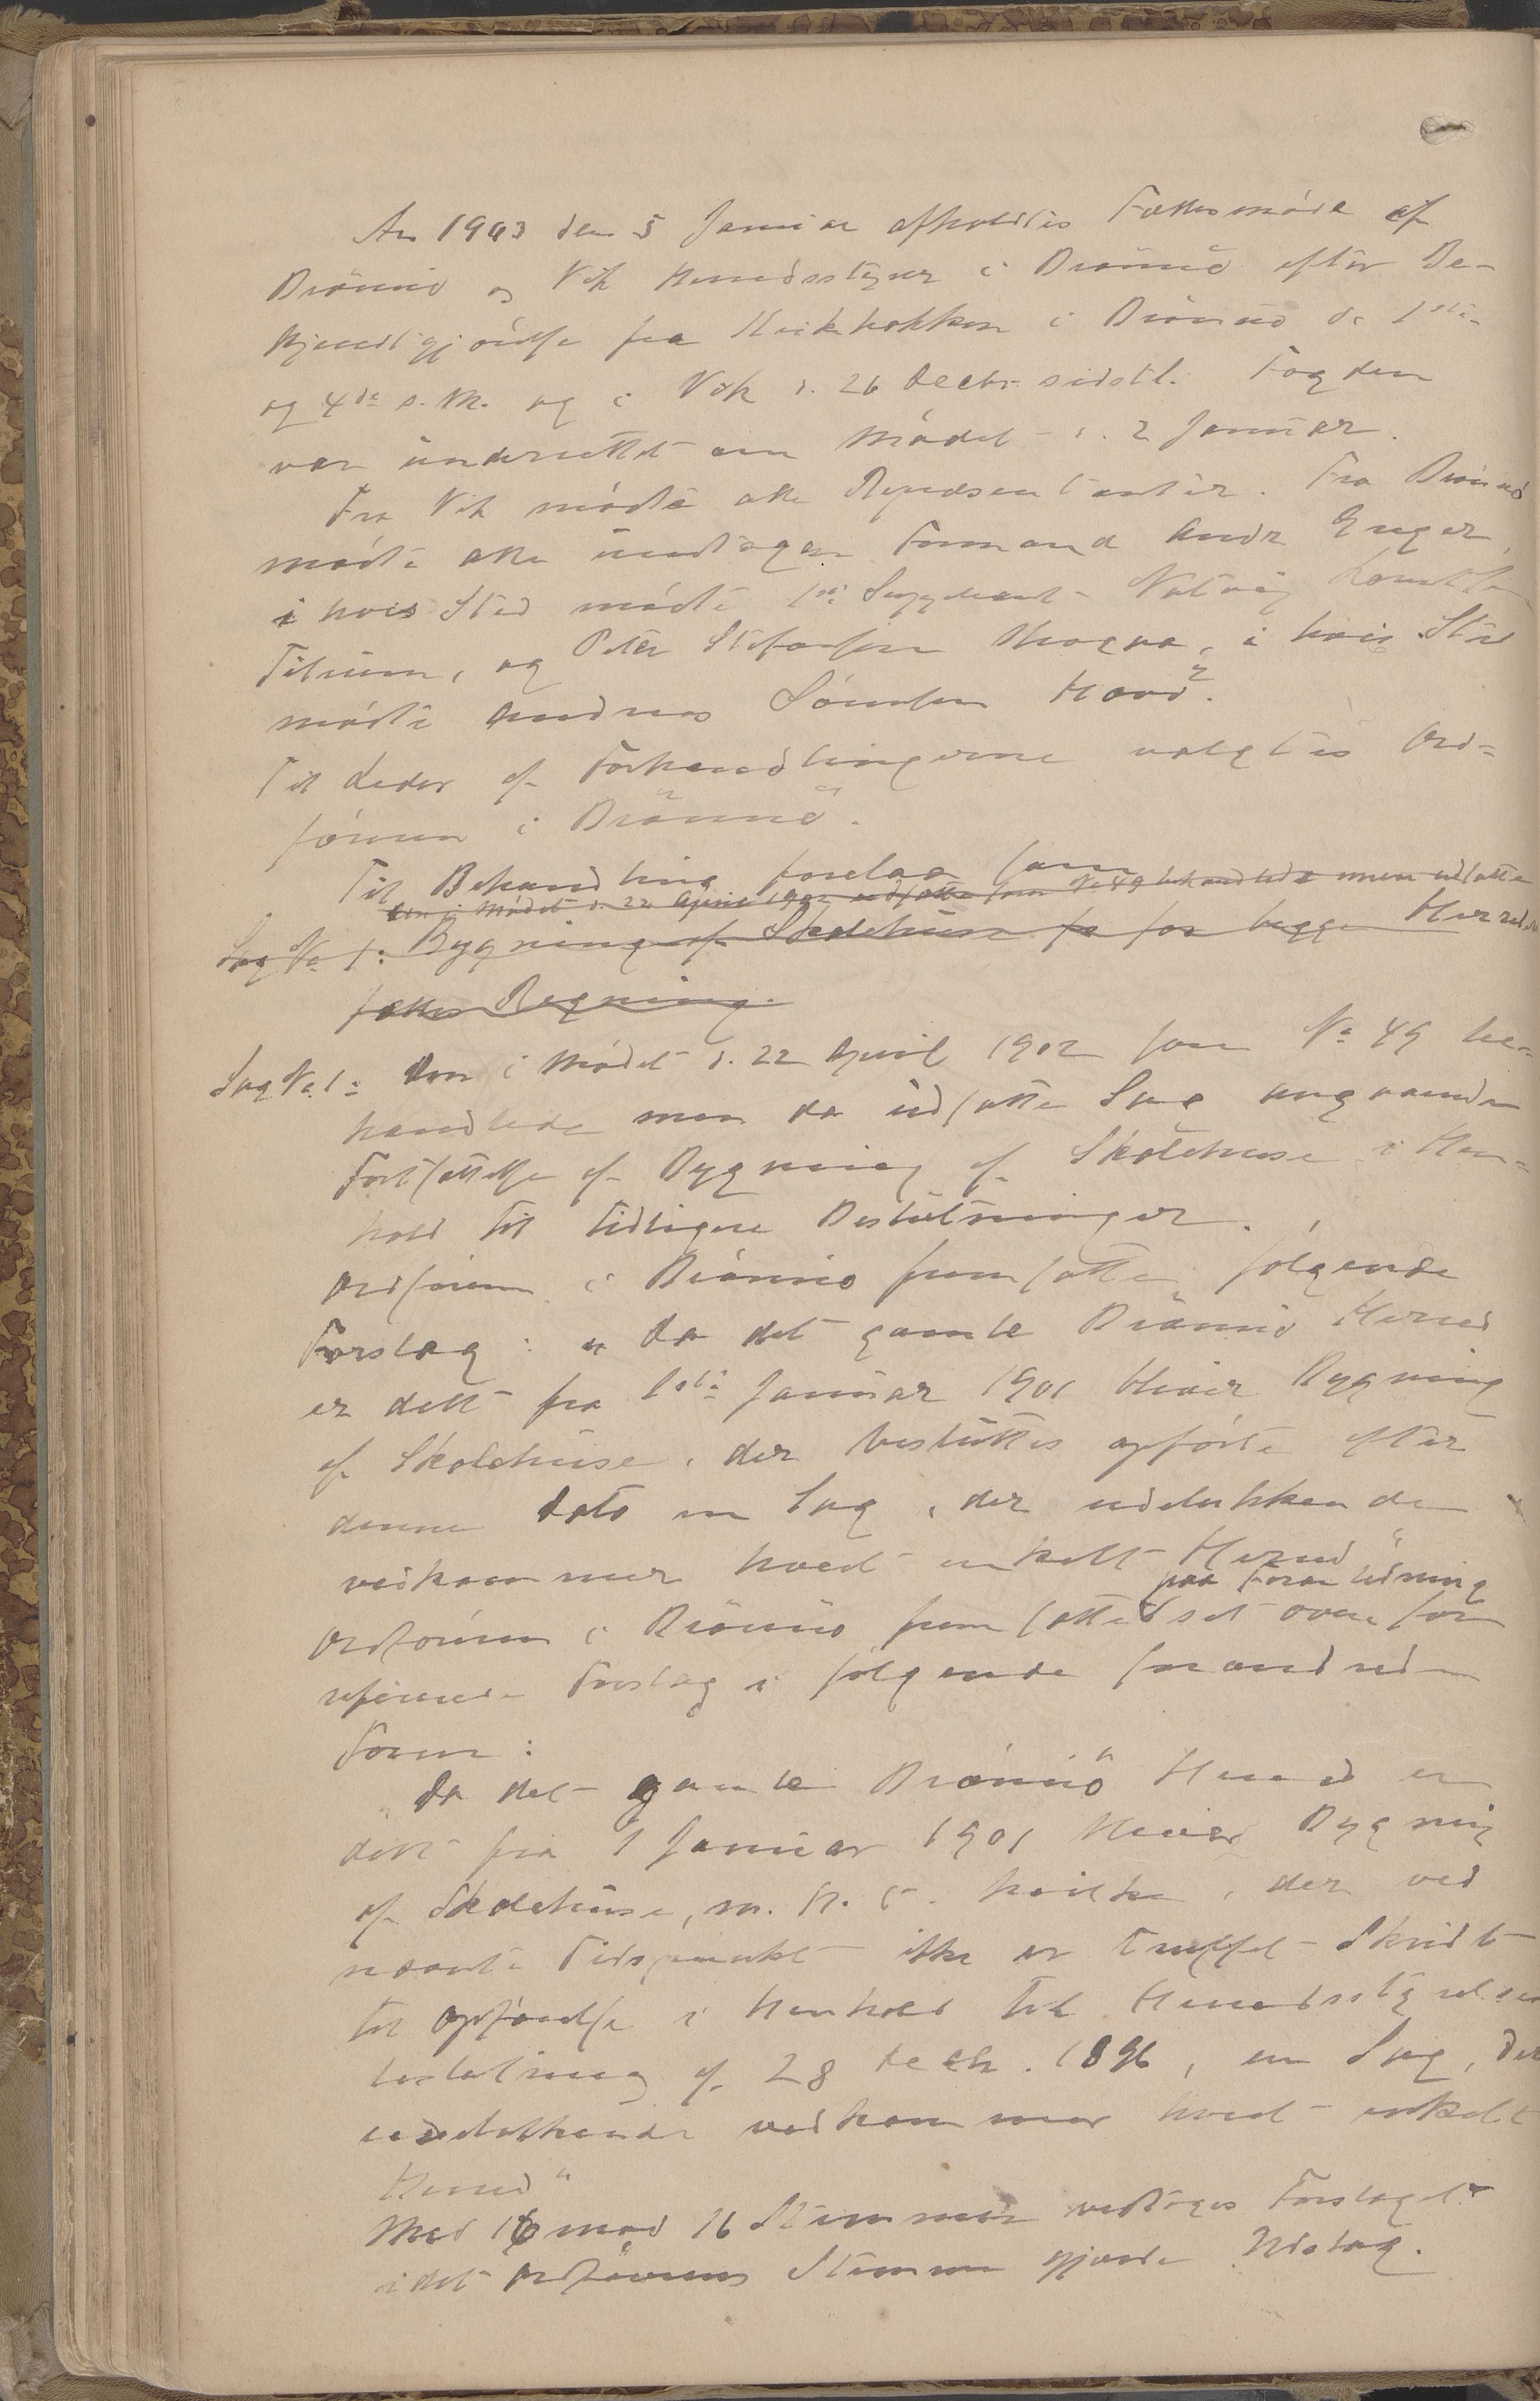 Aar 1903 den 5 Januar afholdtes Fællesmøde af
Brønnø og Vik Herredsstyrer i Brønnø efter Be-
kjendtgjørelse fra Kirkbakken i Brønnø d. 1ste
og 4de s. M. og i Vik d. 26 Decbr. sidstl. Fogden
var underrettet om Mødet d. 2 Januar.
Fra Vik mødte alle Repræsentanter. Fra Brønnø
mødte alle undtagen Formand Andr
i hvis Sted mødte 1ste Suppleant
Tilrum, og Peter Stefansen i hvis Sted
mødte Andreas Sørensen
Til Leder af Forhandlingerne valgtes Ord-
føreren i Brønnø.
Til Behandling forelaa som
den i Mødet d. 22 April 1902 udsatte som No 49 behandlede men udsatte
Sag No 1: Bygning af Skolehuse for begge Herreders
fælles Regning.
Sag No 1: Den i Mødet d. 22 April 1902 som No 49 be-
handlede men da udsatte Sag angaaende
Fortsættelse af Bygning af Skolehuse i Hen-
hold til tidligere Beslutninger.
Ordføreren i Brønnø fremsatte følgende
Forslag: "Da det gamle Brønnø Herred
er delt fra 1ste Januar 1901 bliver Bygning
af Skolehuse, der besluttes opførte efter
denne Dato en Sag, der udelukkende
vedkommer hvert enkelt Herred"
paa Foranledning
Ordføreren i Brønnø fremsatte sit ovenfor
refererede Forslag i følgende forandrede
Form:
"Da det gamle Brønnø Herred er
delt fra 1 Januar 1901 bliver Bygning
af Skolehuse, m. H. t. hvilke, der ved
nævnte Tidspunkt ikke er truffet Skridt
til Opførelse i Henhold til Herredsstyrelsens
beslutning af 28 Decbr. 1896, en Sag, der
udelukkende vedkommer hvert enkelt
Herred"
Med 16 mod 16 Stemmer vedtoges Forslaget
idet Ordførerens Stemme gjorde Udslag.